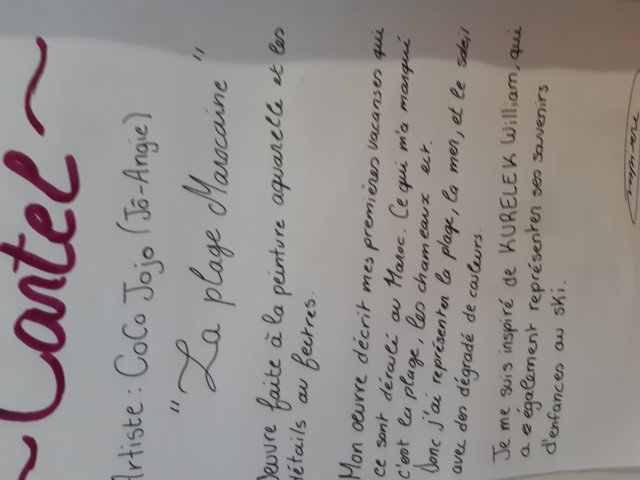 ~ Cartel ~
Artiste : CoCo Jojo (Jô-Angie)
"La plage Marocaine"
Oeuvre faite à la peinture aquarelle et les
détails au feutres.
Mon œuvre décrit mes premières vacanses qui
ce sont déroulé au Maroc. Ce qui m'a manqui
c'est la plage, les chameaux ect.
Donc j'ai représenten la plage, la mer, et le soleil
avec des dégradé de couleurs.
Je me suis inspiré de KURELEK William, qui
a également représenten ses souvenirs
d'enfances au ski.